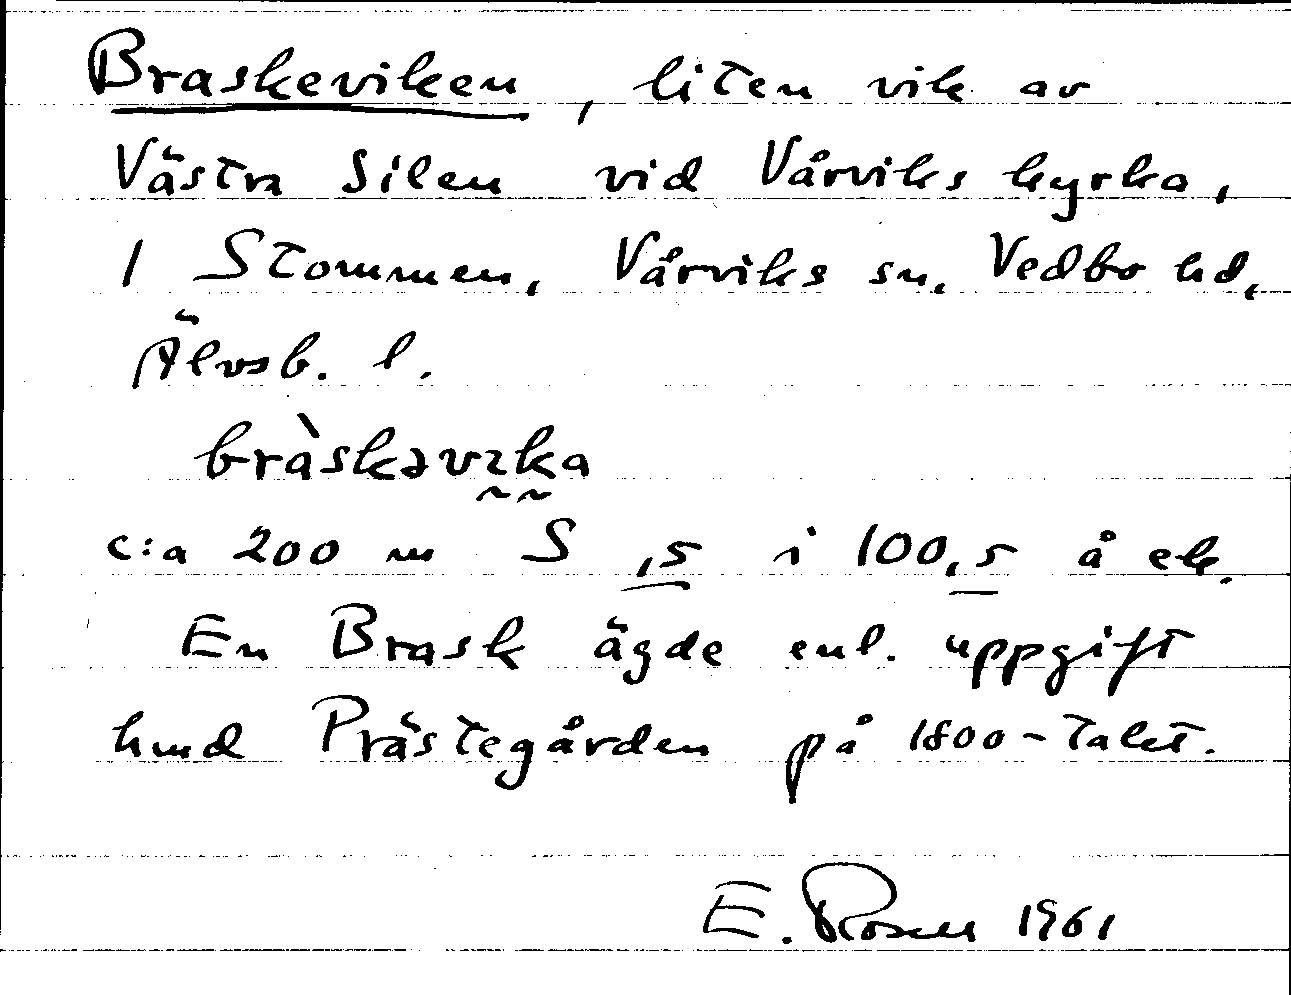 Braskeviken, liten vik av
Västra Silen vid Vårviks kyrka,
1 Stommen, Vårviks sn, Vedbo hd,
Älvsb. l.
bràskəvıka
c:a 200 m S ,5 i 100,5 å ek.
En Brask ägde enl. uppgift
hmd Prästegården på 1800-talet.
E. Rosell 1961